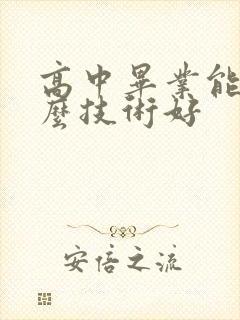 高中畢業能
麼技術好
安倍之流